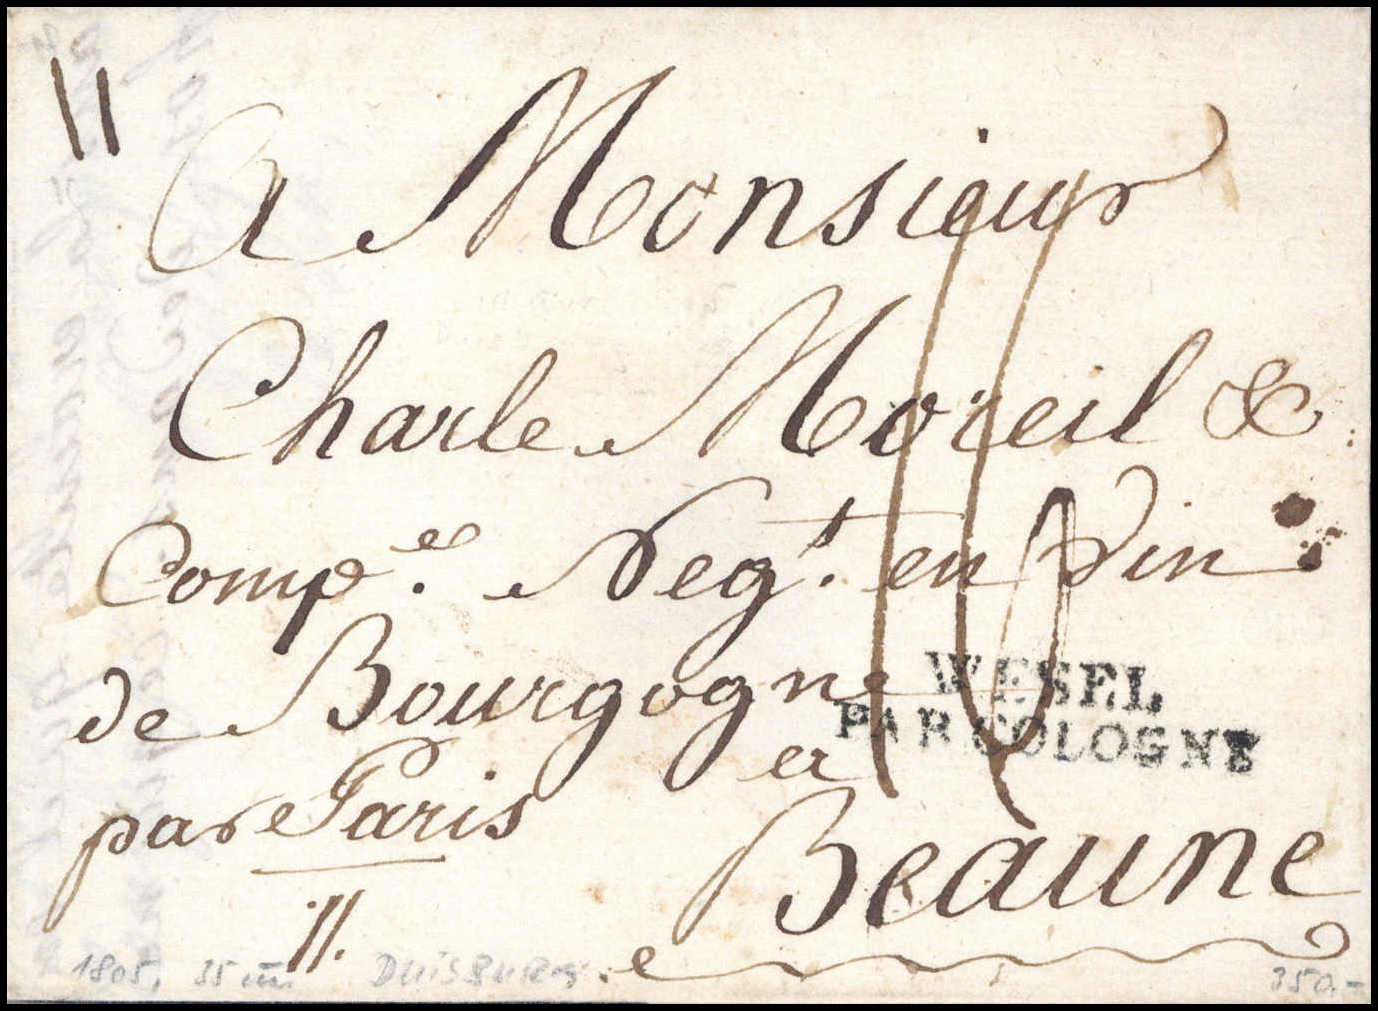 A Monsieur
Charle Moreil &
Comp.ee Negt. en Vin
de Bourgogne
WESEL
PAR COLOGNE
par Paris
a
Beaune
11.
1805, 35 DUISBURG. 350.-